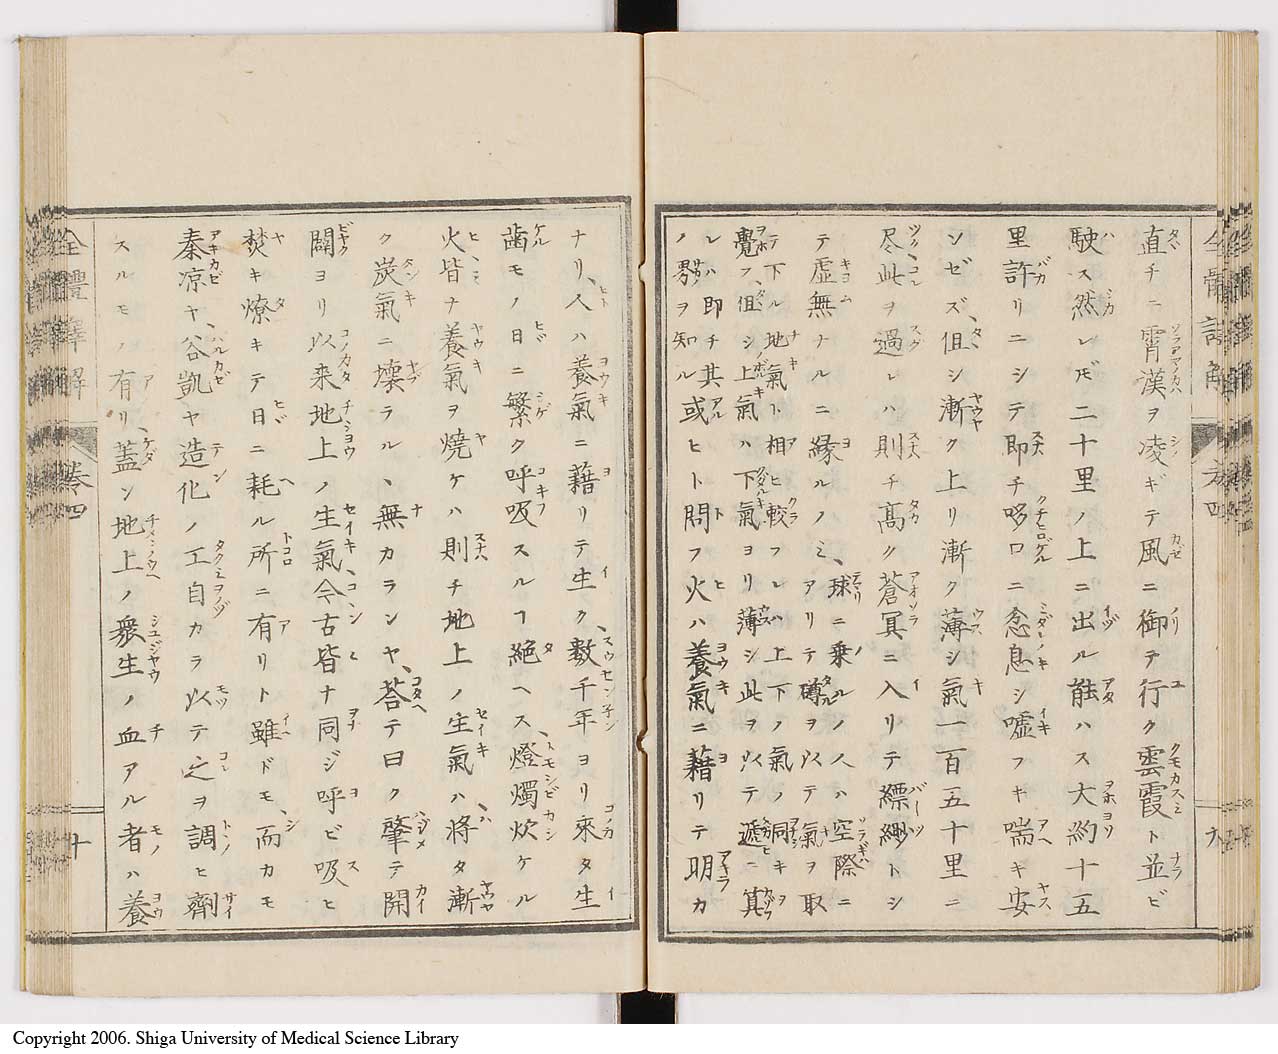 直チニ霄漢ヲ凌ギテ風ニ御テ行ク雲霞ト並ビ
駛ス然レ𪜈二十里ノ上ニ出ル能ハス大約十五
里許リニシテ即チ哆口ニ念息シ嘘フキ喘ギ安
シゼズ、但シ漸ク上リ漸ク薄シ氣一百五十里ニ
尽、此ヲ過レハ則チ高ク蒼冥ニ入リテ縹緲トシ
テ虚無ナルニ縁ルノミ、球ニ乗ルノ人ハ空際ニ
アリテ罇ヲ以テ氣ヲ取
テ下ル地氣ト相ヒ較フレハ上下ノ氣ノ洞キヲ
覺フ、但シ上氣ハ下氣ヨリ薄シ此ヲ以テ遞ニ箕
レハ即チ其
ノ界ヲ知ル
或ヒト問フ火ハ養氣ニ藉リテ明カ
ナリ、人ハ養氣ニ藉リテ生ク、數千年ヨリ來タ生
齒モノ日ニ繁ク呼吸スルヿ絶ヘス、燈燭炊ケル
火皆ナ養氣ヲ焼ケハ則チ地上ノ生氣ハ將タ漸
ク炭氣ニ壞ラルヽ無カランヤ、荅テ曰ク肇テ開
闢ヨリ以来地上ノ生氣今古皆ナ同ジ呼ビ吸ヒ
焚キ燎キテ日ニ耗ル所ニ有リト雖ドモ、而カモ
秦凉ヤ、谷凱ヤ造化ノ工自カラ以テ之ヲ調ヒ劑
スルモノ有リ、蓋シ地上ノ衆生ノ血アル者ハ養
全體譯解
卷四
十
Copyright 2006. Shiga University of Medical Science Library